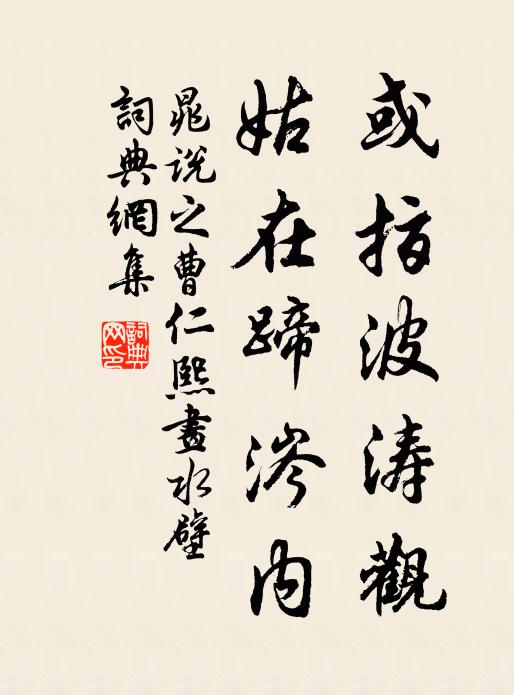 或指波涛觀
姑在蹄涔内
晁说之曹仁熙畫水壁
詞典網集
詞典網印